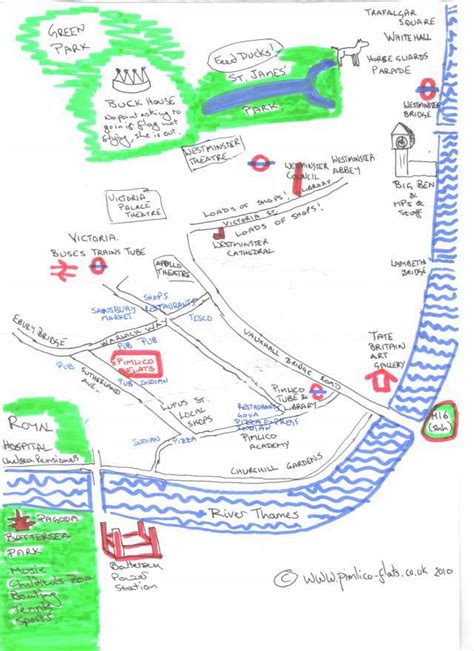 TRAFALGAR
SQUARE
WHITEHALL
HORSE GUARDS
PARADE
GREEN
PARK
Feed Ducks!
ST. JAMES'
PARK
BUCK HOUSE
No point noking to
go in if flag not
flying, she is out.
WESTMINSTER
BRIDGE
WESTMINSTER
THEATRE
WESTMINSTER
COUNCIL
LIBRARY
WESTMINSTER
ABBEY
BIG BEN
&
MPs &
Stuff
VICTORIA
PALACE
THEATRE
LOADS OF SHOPS!
VICTORIA ST.
LOADS OF SHOPS!
WESTMINSTER
CATHEDRAL
VICTORIA
BUSES TRAINS TUBE
APOLLO
THEATRE
LAMBETH
BRIDGE
SAINSBURY
MARKET
SHOPS
RESTAURANTS
TESCO
EBURY BRIDGE
WARWICK WAY
PUB
PUB
PUB
PIMLICO
FLATS
PUB INDIAN
SUTHERLAND
AVE.
VAUXHALL BRIDGE ROAD
TATE
BRITAIN
ART
GALLERY
PIMLICO
TUBE &
LIBRARY
LUPUS ST.
LOCAL
SHOPS
RESTAURANTS
GOYA
PIZZA EXPRESS
INDIAN
PIMLICO
ACADEMY
INDIAN
PIZZA
MI6
(Shh)
ROYAL
HOSPITAL
Chelsea Pensioners
CHURCHILL GARDENS
RIVER THAMES
PAGODA
BATTERSEA
PARK
MUSIC
Children's Zoo
Bowling
Tennis
Sports
Battersea
Power
Station
© www.pimlico-flats.co.uk 2010